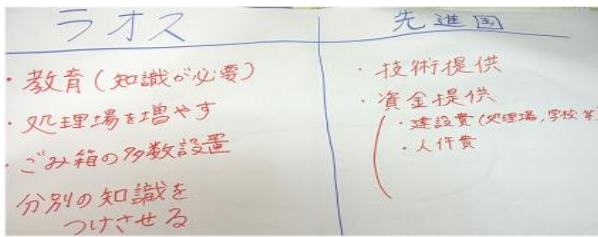 ラオス
・教育(知識が必要)
・処理場を増やす
・ごみ箱の多数設置
分別の知識を
つけさせる
先進国
・技術提供
・資金提供
・建設費(処理場,学校等)
・人件費